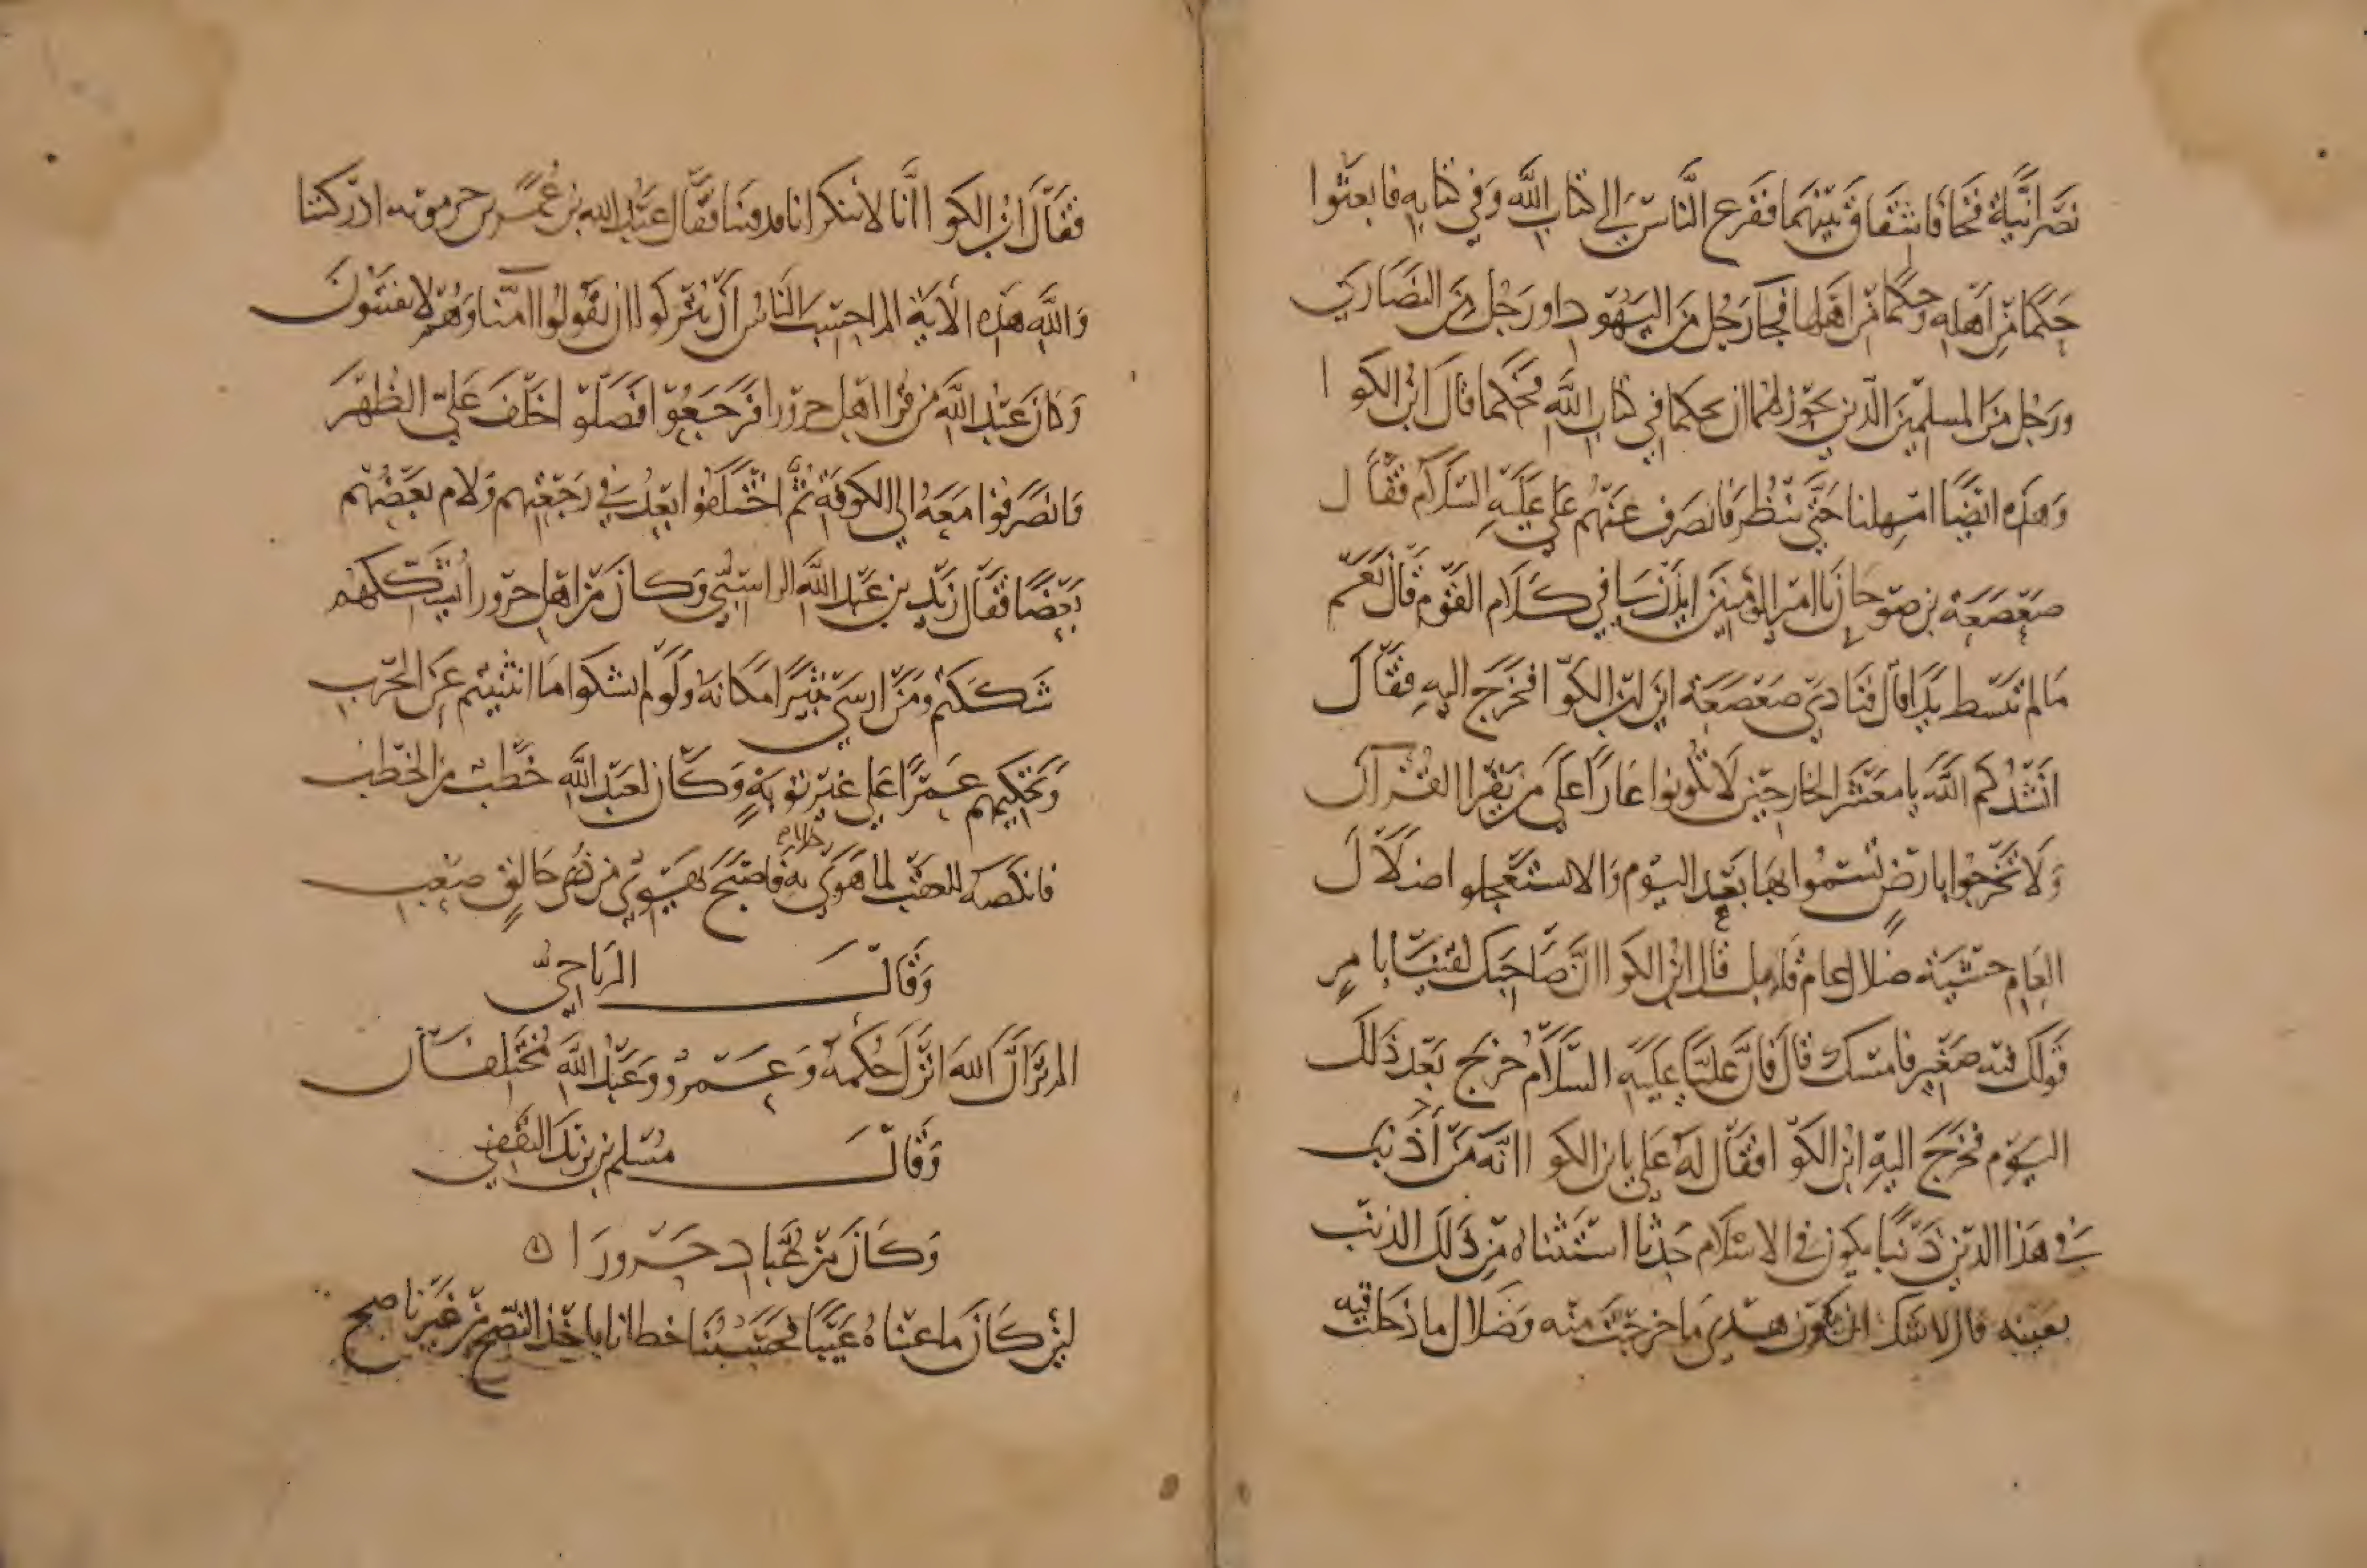 نَصْرَانيَّة فَخَافَا شِقَاقَ بَيْنِهِمَا فَفَزِعَ النَّاسُ إلى كتاب اللَّه وَفي كتابه فابعثوا
حَكَمًا مِّن اَهله وَحَكَمًا مِّن اَهلها فجَا رَجُل مِّنَ اليَهُود او رَجُل مِنَ النصَارَي
ورَجُل مِنَ المسلمينَ الّذين يَجوز لهُما ان يحكما في كتاب اللَّه فحَكما قالَ ابن الكوا
وَهَذه ايضًا امهلنا حَتّي ننْظُر فانصَرَف عَنهُم عَلي عَليه السَّلَام فقَال
صَعْصَعَة بن صوحَان يَا امير المؤمنين ايذن لنا في كَلَام القَوم قَال نَعَم
مَا لم تبسط يدًا قال فنادي صَعْصَعَة ابن الكوا فخَرَج اليهِ فقَال
انشُدُكم اللَّهَ يا معشَر الخارجين لَا تكونوا عَارًا عَلَي مَن يَقرا القُرآن
وَلَا تخرجوا بارضٍ تُسَمّوا بهَا بَعْدَ اليَوم وَالا تستعجلوا ضلَال
العَامِ خشيَة ضلال عام قابل قال ابن الكوا انَّ صَاحبَك لقينَا بامرٍ
قَولك فيه صَغير فامسك قال فانَّ عليًّا عَليه السَّلَام خرج بَعد ذَلك
اليَوم فخَرَجَ اليهِ ابن الكوا فقَال لَهُ عَلي يا بن الكوا انَّه مَن أذنب
في هَذا الدين ذَنبًا يكون في الاسْلَام حَدثًا استَتبنَاهُ مِن ذَلك الذنب
بعَينه قال لا شك ان تكون هدي مَا خرجت منه وَضلال ما دَخلت فيه
فقَالَ ابن الكوا انَّنا لا ننكر انا قد فتنا فقَال عَبْد الله بن عُمر بن جرموته ادركتنا
وَاللَّه هَذِه الآيَة الم احسب النَّاسُ أن يُتركوا ان يقولوا امَنّا وَهُم لا يفتنون
وَكانَ عَبْد اللَّه من قرا اهل حرورا فرَجَعوا فصَلّوا خَلْفَ عَليّ الظُهْرَ
وانصَرَفوا مَعَهُ الي الكوفَة ثُمَّ اختلَفوا بَعدُ في رَجْعَتهم وَلام بَعضُهُم
بَعضًا فقَالَ زَيد بن عَبْد اللَّه الراسبيّ وَكانَ مِن اهل حَرورا يُشككهُم
شَككتم وَمَن ارسَي ثَبيرًا مكَانهُ وَلَو لم تشكوا مَا انثنيتم عَن الحَرب
وَتَحكيمهم عَمرًا عَلي غير توبَةٍ وَكَان لعَبد اللَّه خَطب من الخَطب
فانكصه للعقب لما هَوَي به فاصبح يَهوي مِن ذُري حَالق صَعب
وَقَالَ الريَاحيُّ
الم تَرَ انَّ اللهَ انزَلَ حُكمهُ وَعَمرو وَعَبْد اللَّه مُختَلفان
وَقَالَ مُسلم بن يزيد الثقفي
وَكَانَ من عُبّاد حَرورَا
لئِن كَانَ مَا عبناهُ عَيبًا فحَسبنَا خطانا باخذ النصْح مِن غَيرنا صح